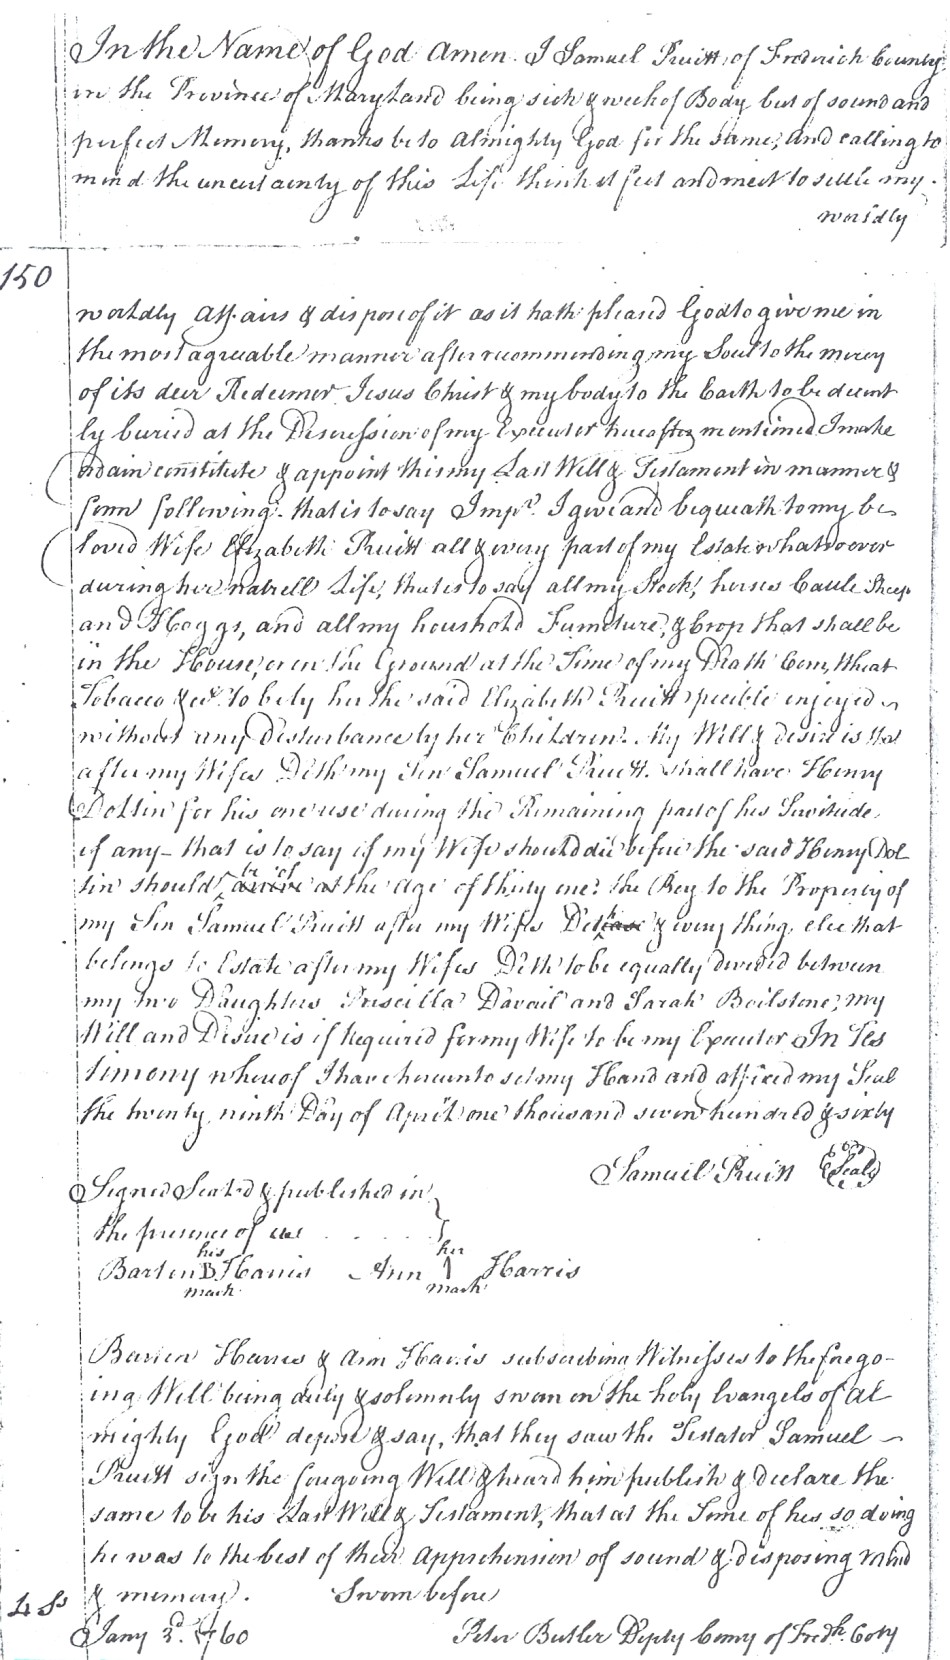 In the Name of God Amen. I Samuel Pruitt, of Frederick County
in the Province of Maryland being sick & weeke of Body but of sound and
perfect Memory, thanks be to Almighty God for the same, and calling to
mind the uncertainty of this Life think it feet and meet to settle my
worldly
150
worldly Affairs & dispose of it as it hath pleased God to give me in
the most agreeable manner after recommending my Soul to the mercy
of its deer Redeemer Jesus Christ & my body to the Earth to be decent
ly buried at the Descression of my Executor hereafter mentioned I make
ordain constitute & appoint this my Last Will & Testament in manner &
form following. that is to say Impr. I give and bequeath to my be
loved Wife Elizabeth Pruitt all & every part of my Estate whatsoever
during her natrell Life, that is to say all my Stock, horses Cattle Sheep
and Hoggs, and all my houshold Furniture, & Crop that shall be
in the House, or on the Ground at the Time of my Death Corn, Wheat
Tobacco &c. to be by her the said Elizabeth Pruitt enjoyed
without any Disturbance by her Children. My Will & desire is that
after my Wifes Deth my Son Samuel Pruitt. shall have Henry
Dottin for his one use during the Remaining part of his Servitude,
if any - that is to say if my Wife should die before the said Henry Dot
tin should be of arive at the age of thirty one? the Boy to the Property of
my Son Samuel Pruitt after my Wifes Deth & every thing else that
belongs to Estate after my Wifes Deth to be equally devided between
my two Daughters Priscilla Davail and Sarah Boilstone, my
Will and Desire is if Required for my Wife to be my Executor In Tes
timony whereof I have hereunto set my Hand and affixed my Seal
the twenty ninth Day of April one thousand seven hundred & sixty
Samuel Pruitt Seal
Signed Sealed & published in
the presence of us
his her
Barten B Harris Ann Harris
mark mark
Barten Harris & Ann Harris subscribing Witnesses to the forego-
ing Will being duly & solemnly sworn on the holy Evangels of Al
mighty God depose & say, that they saw the Testator Samuel
Pruitt sign the foregoing Will & heard him publish & declare the
same to be his Last Will & Testament, that at the Time of his so doing
he was to the best of their Apprehension of sound & disposing mind
& memory. Sworn before
Jany 3d. 1760 Peter Butler Depty Comy of Fredk. Coty